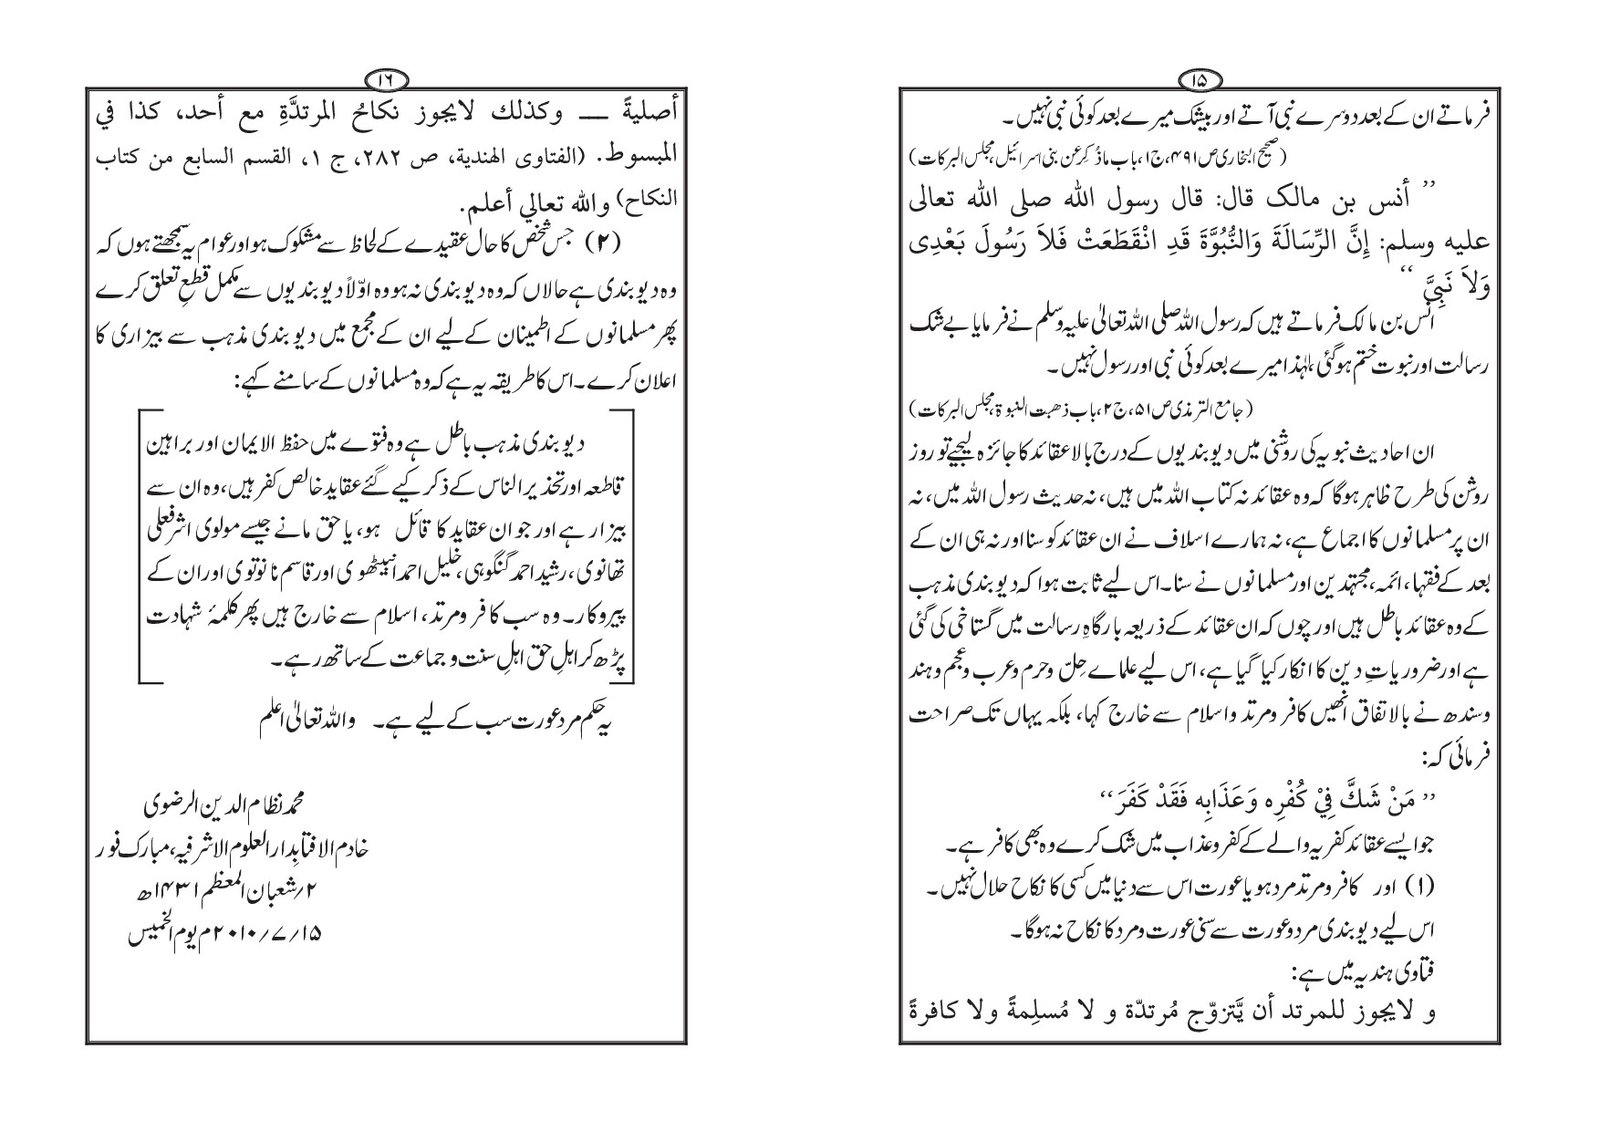 ۱۵
فرماتے ان کے بعد دوسرے نبی آتے اور بیشک میرے بعد کوئی نبی نہیں۔
(صحیح البخاری ص ۴۹۱، ج۱، باب ماذُکِرَ عن بنی اسرائیل، مجلس البرکات)
’’ أنس بن مالک قال: قال رسول الله صلی الله تعالی
علیه وسلم: إِنَّ الرِّسَالَةَ وَالنُّبُوَّةَ قَدِ انْقَطَعَتْ فَلاَ رَسُولَ بَعْدِی
وَلاَ نَبِیَّ ‘‘
انس بن مالک فرماتے ہیں کہ رسول اللہ صلی اللہ تعالیٰ علیہ وسلم نے فرمایا بے شک
رسالت اور نبوت ختم ہوگئی، لہٰذا میرے بعد کوئی نبی اور رسول نہیں۔
(جامع الترمذی ص ۵۱، ج۲، باب ذھبت النبوۃ، مجلس البرکات)
ان احادیث نبویہ کی روشنی میں دیوبندیوں کے درج بالا عقائد کا جائزہ لیجیے تو روز
روشن کی طرح ظاہر ہوگا کہ وہ عقائد نہ کتاب اللہ میں ہیں، نہ حدیث رسول اللہ میں، نہ
ان پر مسلمانوں کا اجماع ہے، نہ ہمارے اسلاف نے ان عقائد کو سنا اور نہ ہی ان کے
بعد کے فقہا، ائمہ، مجتہدین اور مسلمانوں نے سنا۔ اس لیے ثابت ہوا کہ دیوبندی مذہب
کے وہ عقائد باطل ہیں اور چوں کہ ان عقائد کے ذریعہ بارگاہِ رسالت میں گستاخی کی گئی
ہے اور ضروریاتِ دین کا انکار کیا گیا ہے، اس لیے علماے حِلّ و حرم و عرب و عجم و ہند
و سندھ نے بالاتفاق انھیں کافر و مرتد و اسلام سے خارج کہا، بلکہ یہاں تک صراحت
فرمائی کہ:
’’ مَنْ شَكَّ فِيْ كُفْرِه وَعَذَابِه فَقَدْ كَفَرَ‘‘
جو ایسے عقائد کفریہ والے کے کفر و عذاب میں شک کرے وہ بھی کافر ہے۔
(۱) اور کافر و مرتد مرد ہو یا عورت اس سے دنیا میں کسی کا نکاح حلال نہیں۔
اس لیے دیوبندی مرد و عورت سے سنی عورت و مرد کا نکاح نہ ہوگا۔
فتاوی ہندیہ میں ہے:
و لایجوز للمرتد أن یَّتزوّج مُرتدّة و لا مُسلِمةً ولا کافرةً
۱۶
أصلیةً ـــ وکذلك لایجوز نکاحُ المرتدَّةِ مع أحد، کذا في
المبسوط. (الفتاوی الهندية، ص ۲۸۲، ج ۱، القسم السابع من کتاب
النکاح) والله تعالي أعلم.
(۲) جس شخص کا حال عقیدے کے لحاظ سے مشکوک ہو اور عوام یہ سمجھتے ہوں کہ
وہ دیوبندی ہے حالاں کہ وہ دیوبندی نہ ہو وہ اوّلاً دیوبندیوں سے مکمل قطعِ تعلق کرے
پھر مسلمانوں کے اطمینان کے لیے ان کے مجمع میں دیوبندی مذہب سے بیزاری کا
اعلان کرے۔ اس کا طریقہ یہ ہے کہ وہ مسلمانوں کے سامنے کہے:
دیوبندی مذہب باطل ہے وہ فتوے میں حفظ الایمان اور براہین
قاطعہ اور تحذیر الناس کے ذکر کیے گئے عقاید خالص کفر ہیں، وہ ان سے
بیزار ہے اور جو ان عقاید کا قائل ہو، یا حق مانے جیسے مولوی اشرفعلی
تھانوی، رشید احمد گنگوہی، خلیل احمد انبیٹھوی اور قاسم نانوتوی اور ان کے
پیروکار۔ وہ سب کافر و مرتد، اسلام سے خارج ہیں پھر کلمۂ شہادت
پڑھ کر اہلِ حق اہلِ سنت و جماعت کے ساتھ رہے۔
یہ حکم مرد عورت سب کے لیے ہے۔ واللہ تعالیٰ اعلم
محمد نظام الدین الرضوی
خادم الافتا بدار العلوم الاشرفیہ، مبارک فور
۲/ شعبان المعظم ۱۴۳۱ھ
۱۵/ ۷/ ۲۰۱۰م یوم الخمیس